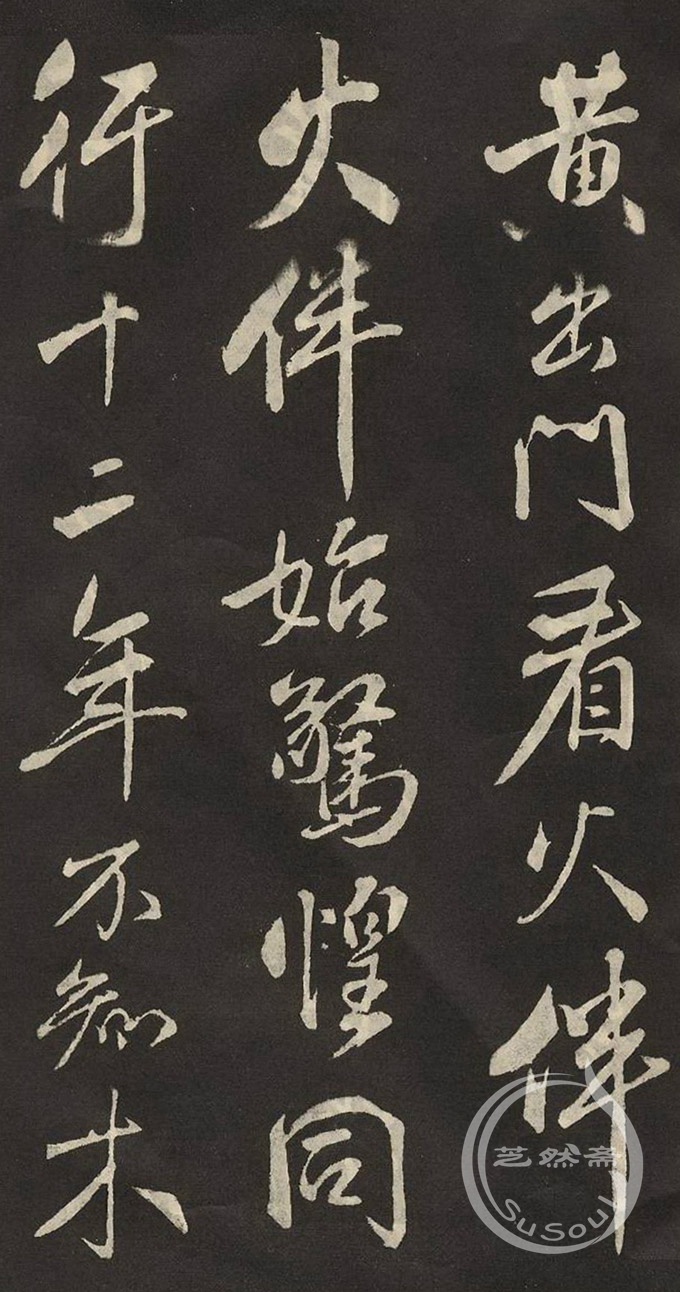 黄出門看火伴
火伴始驚惶同
行十二年不知木
芝然斋
SuSoul